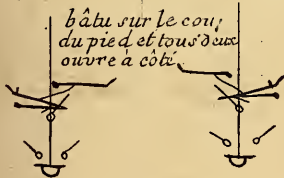 bâtu sur le cou,
du pied et tous deux
ouvre à côté.